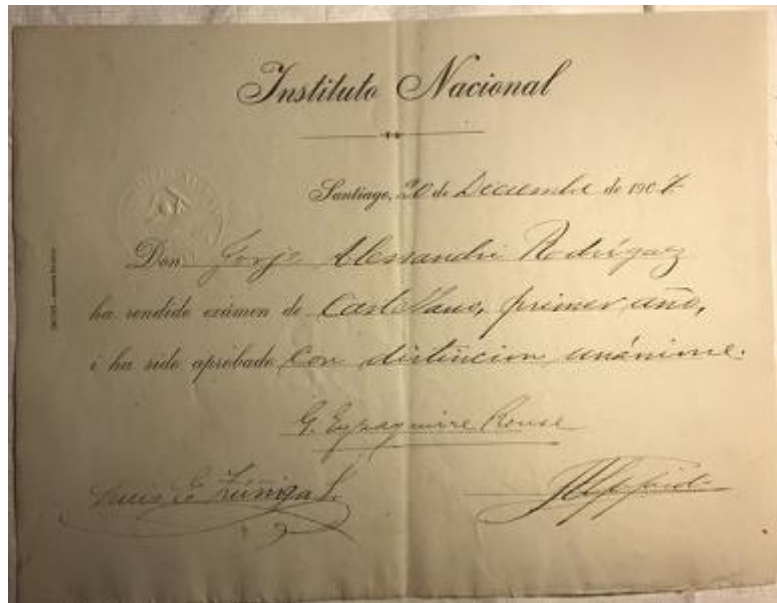 Instituto Nacional
Santiago, 20 de Diciembre de 1907
Don Jorje Alessandri Rodríguez
ha rendido exámen de Castellano, primer año,
i ha sido aprobado con distincion unánime.
G. Eyzaguirre Rouse
Luis E. Zúñiga L.